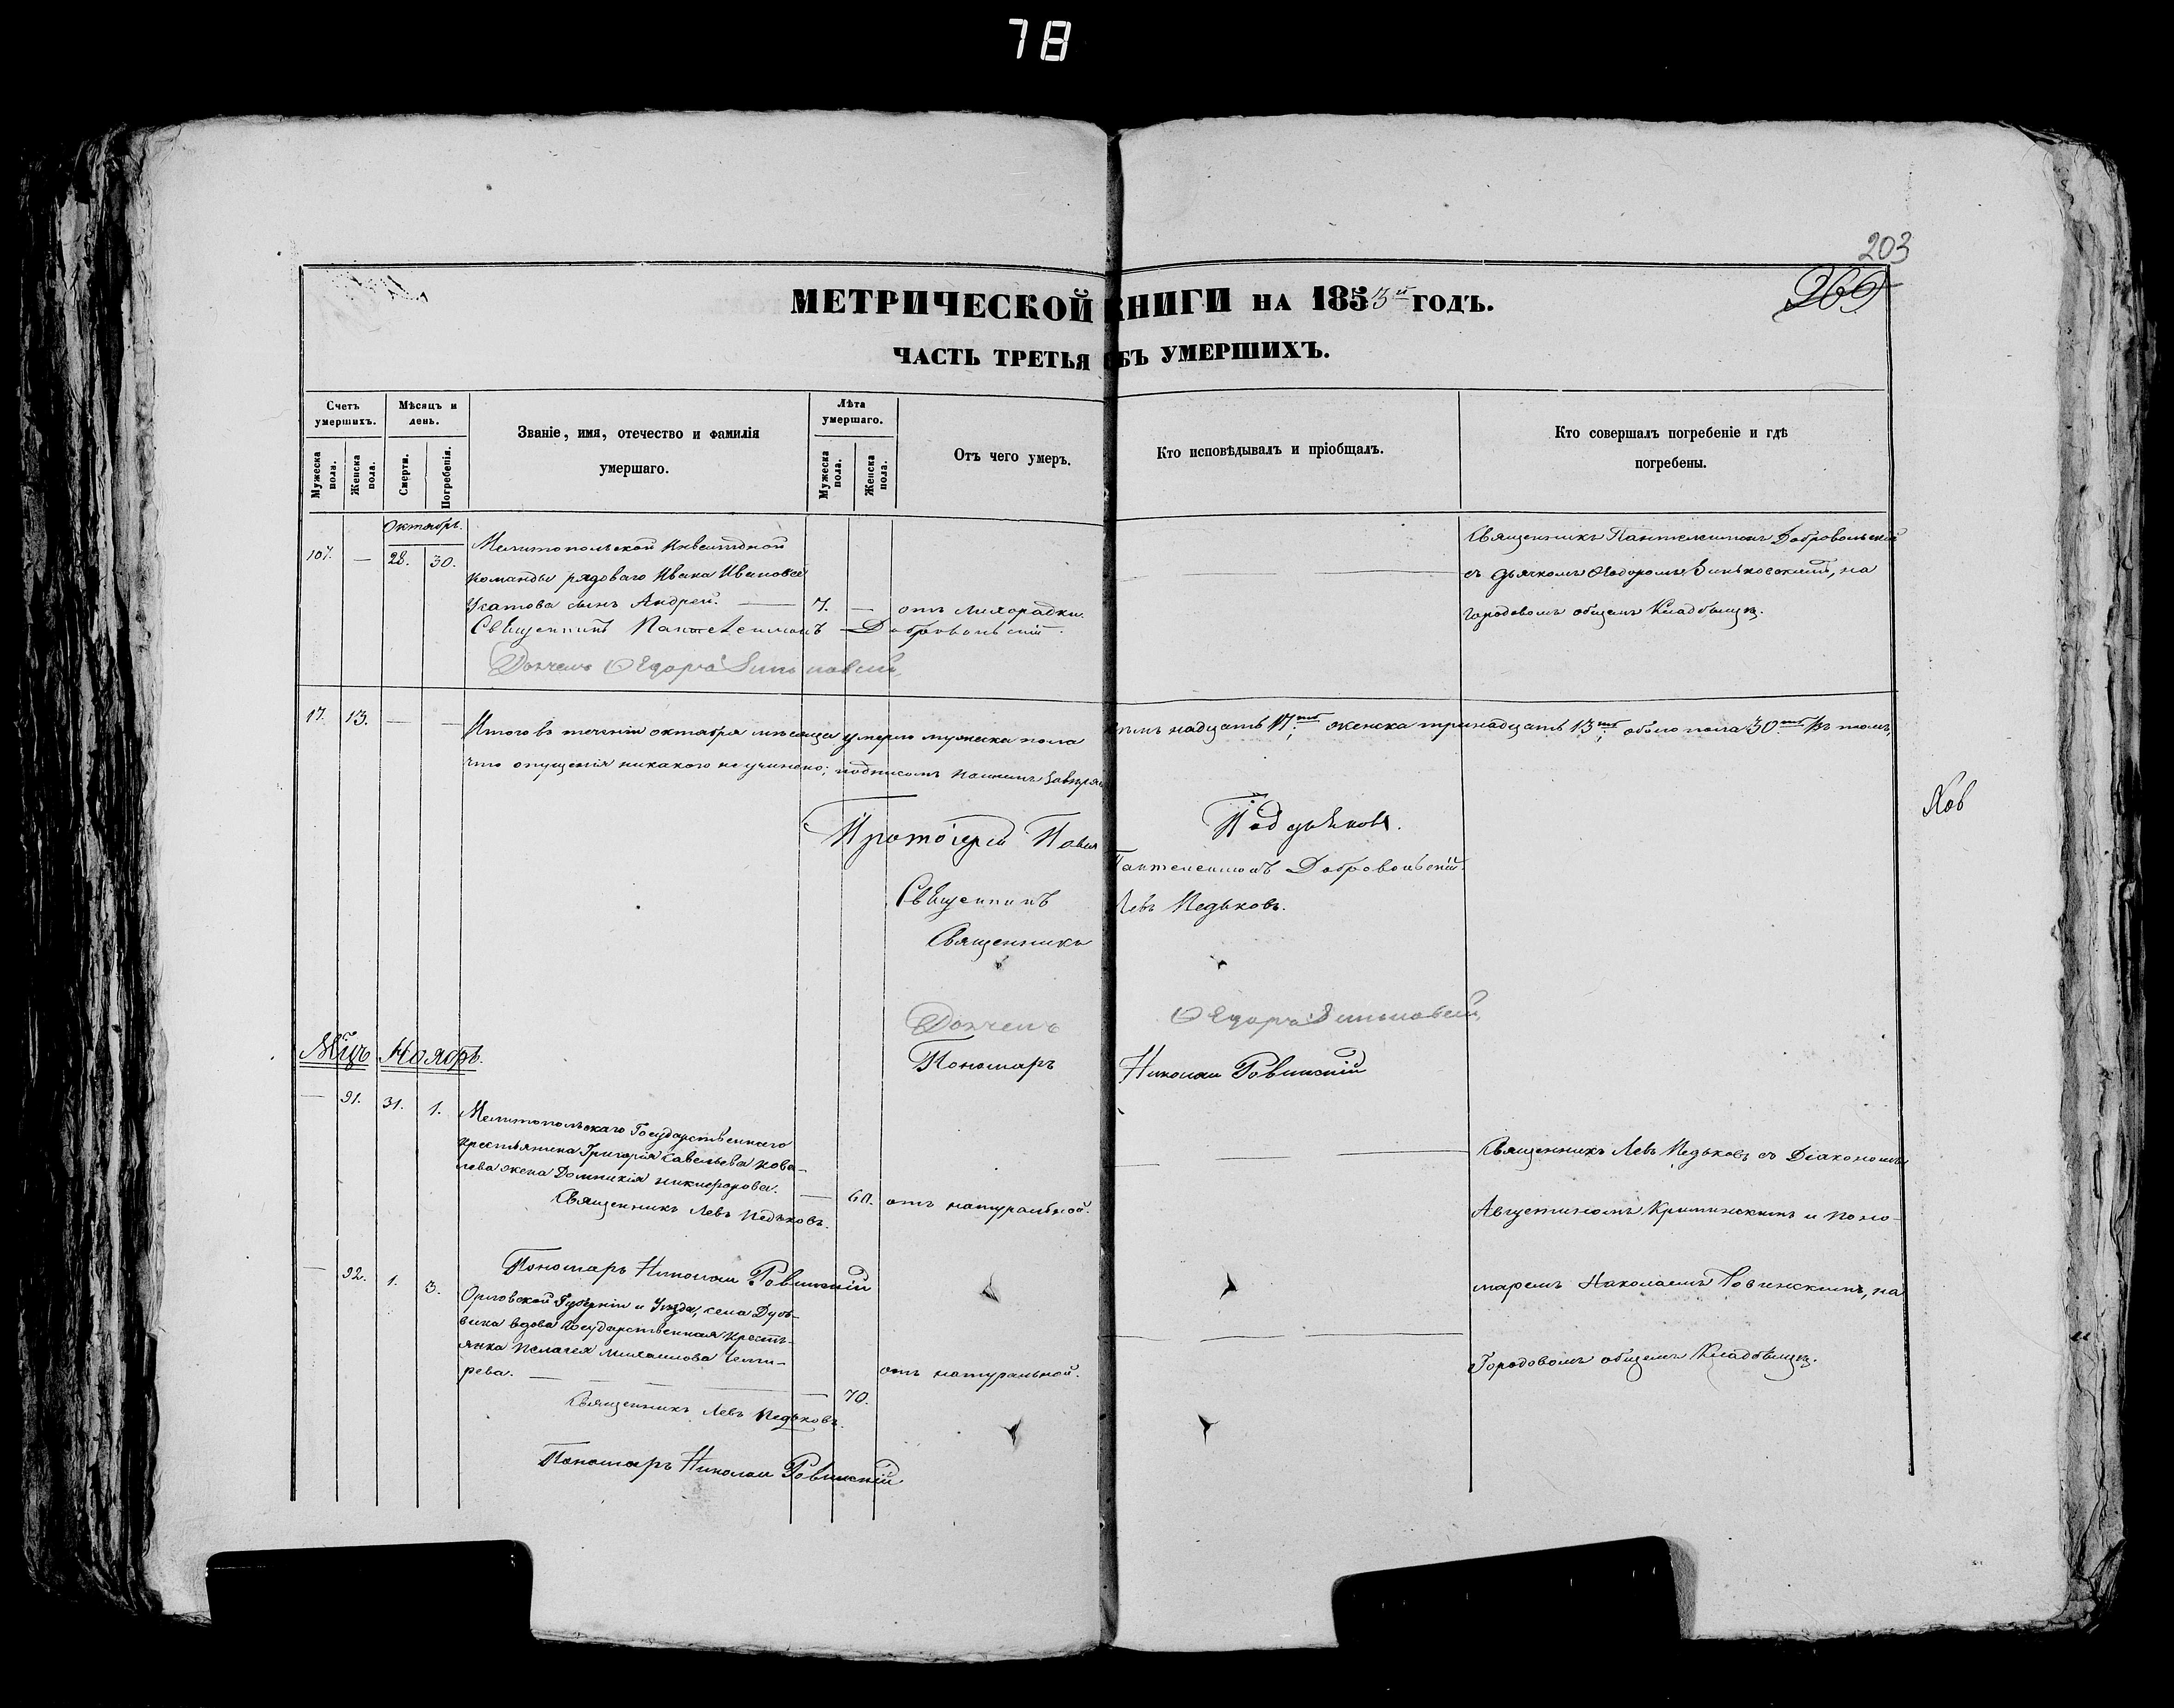 78
203
269
МЕТРИЧЕСКОЙ КНИГИ НА 1853й ГОДЪ.
ЧАСТЬ ТРЕТЬЯ ОБЪ УМЕРШИХЪ.
Счетъ умершихъ.
Мужеска пола.
Женска пола.
Мѣсяцъ и день.
Смерти.
Погребенія.
Званіе, имя, отечество и фамилія умершаго.
Лѣта умершаго.
Мужеска пола.
Женска пола.
Отъ чего умеръ.
Кто исповѣдывалъ и пріобщалъ.
Кто совершалъ погребеніе и гдѣ погребены.
Октябрь.
107. — 28. 30.
Мелитопольской Инвалидной
команды рядоваго Ивана Иванова
Усатова сынъ Андрей. — 7. — отъ лихорадки.
Священникъ Пантелеимонъ Добровольскій.
Священникъ Пантелеимонъ Добровольскій
съ дьячкомъ Ѳеодоромъ Зиньковскимъ, на
городовомъ общемъ кладбищѣ.
17. 13. — —
Итого въ теченіи октября мѣсяца умерло мужеска пола семнадцать 17ть, женска тринадцать 13ть, обоего пола 30ть Въ томъ,
что опущенія никакого не учинено; подписомъ нашимъ завѣряемъ
Протоіерей Павелъ Поддьяковъ.
Священникъ Пантелеимонъ Добровольскій.
Священникъ Левъ Педьковъ.
Пономарь Николай Ровинскій
Мцъ Ноябрь.
— 91. 31. 1.
Мелитопольскаго Государственнаго
крестьянина Григорія Савельева Кова-
лева жена Домникія Никифорова. — 60. отъ натуральной.
Священникъ Левъ Педьковъ.
Пономарь Николай Ровинскій
— 92. 1. 3.
Орловской Губерніи и Уѣзда, села Дубо-
вика вдова Государственная крестъ-
янка Пелагея Михаилова
рева. — 70. отъ натуральной.
Священникъ Левъ Педьковъ.
Пономарь Николай Ровинскій
Священникъ Левъ Педьковъ съ Діакономъ
Августиномъ Криминскимъ и Поно-
маремъ Николаемъ Ровинскимъ, на
Городовомъ общемъ Кладбищѣ.